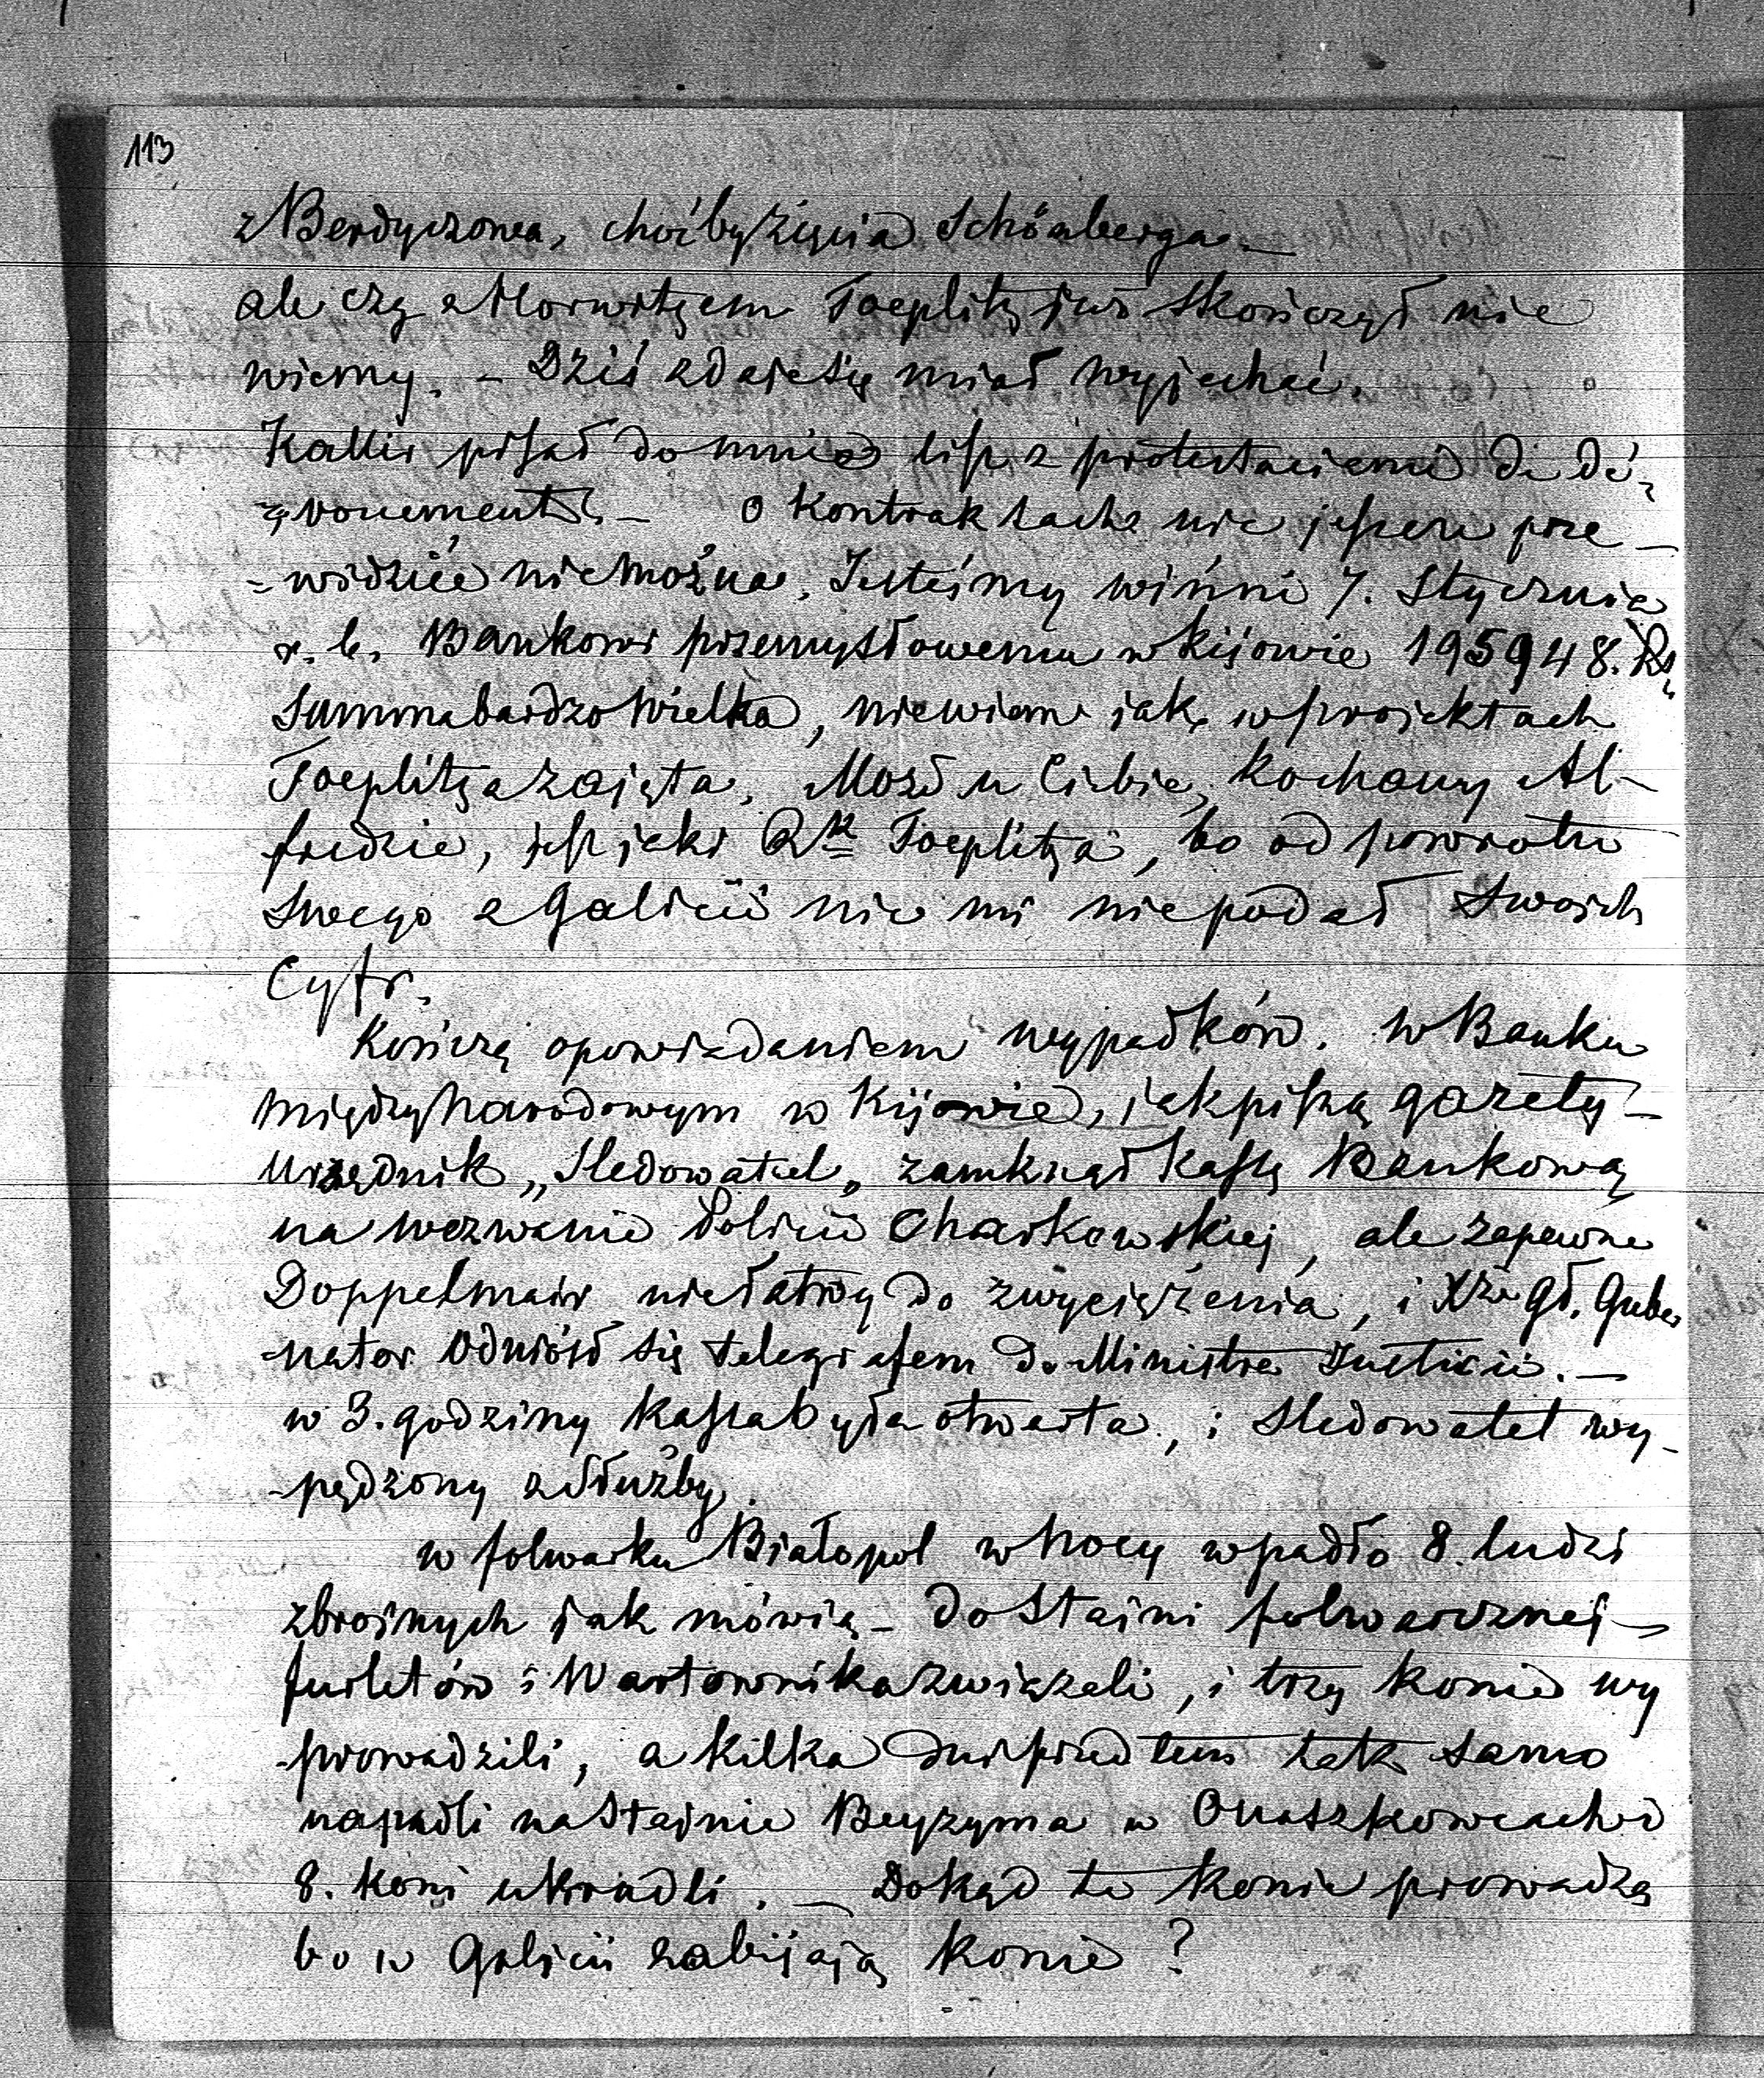 113
z Berdyczowa, choćby Zięcia Schönberga. –
ale czy z Horwitzem Toeplitz już skończył nie
wiemy. – Dziś zdaje się miał wyjechać.
Kallir pisał do mnie list z protestaciami de dé-
-vouement. – o Kontraktach nic jeszcze prze –
- widzieć nie można. Jesteśmy winni 7. Stycznia
r. b. Bankowi przemysłowemu w Kijowie 195948. Rs.
Summa bardzo Wielka, niewiem jak w projektach
Toeplitza zajęta. Może u Ciebie, kochany Al-
fredzie, jest jaki Rk Toeplitza, bo od powrotu
Swego z Galicii nic mi niepodał Swoich
Cyfr.
Kończę opowiadaniem wypadków. w Banku
międzynarodowym w Kijowie, jak piszą gazety –
Urzędnik „Sledowatel„ zamknął Kassę Bankową
na wezwanie Policii Charkowskiej, ale zapewne
Doppelmair niełatwy do zwyciężenia, i Xże Gł. Guber
-nator odniósł się telegrafem do Ministra Justicii. –
w 3. godziny Kassa była otwarta, i Sledowatel wy-
-pędzony z Służby.
w folwarku Białopol w Nocy wpadło 8. ludzi
zbrojnych jak mówią – do Stajni folwarcznej –
furletów i Wartownika związali, i trzy konie wy
-prowadzili, a kilka dni przed tem tak samo
napadli na Stajnie Beyzyma w Onaszkowcach i
8. koni ukradli. – Dokąd te Konie prowadzą
bo w Galicii zabijają konie?